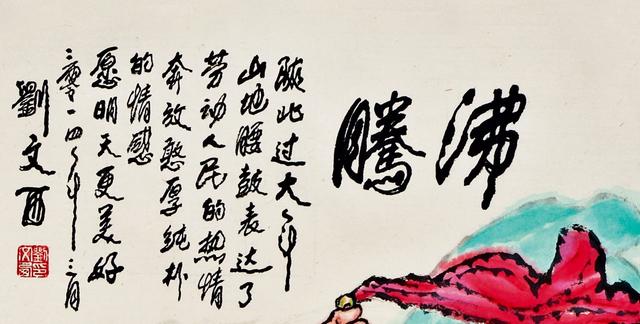 沸騰
陕北过大年
山地腰鼓表达了
劳动人民的热情
奔放憨厚纯朴
的情感
愿明天更美好
二零一四年三月
劉文西